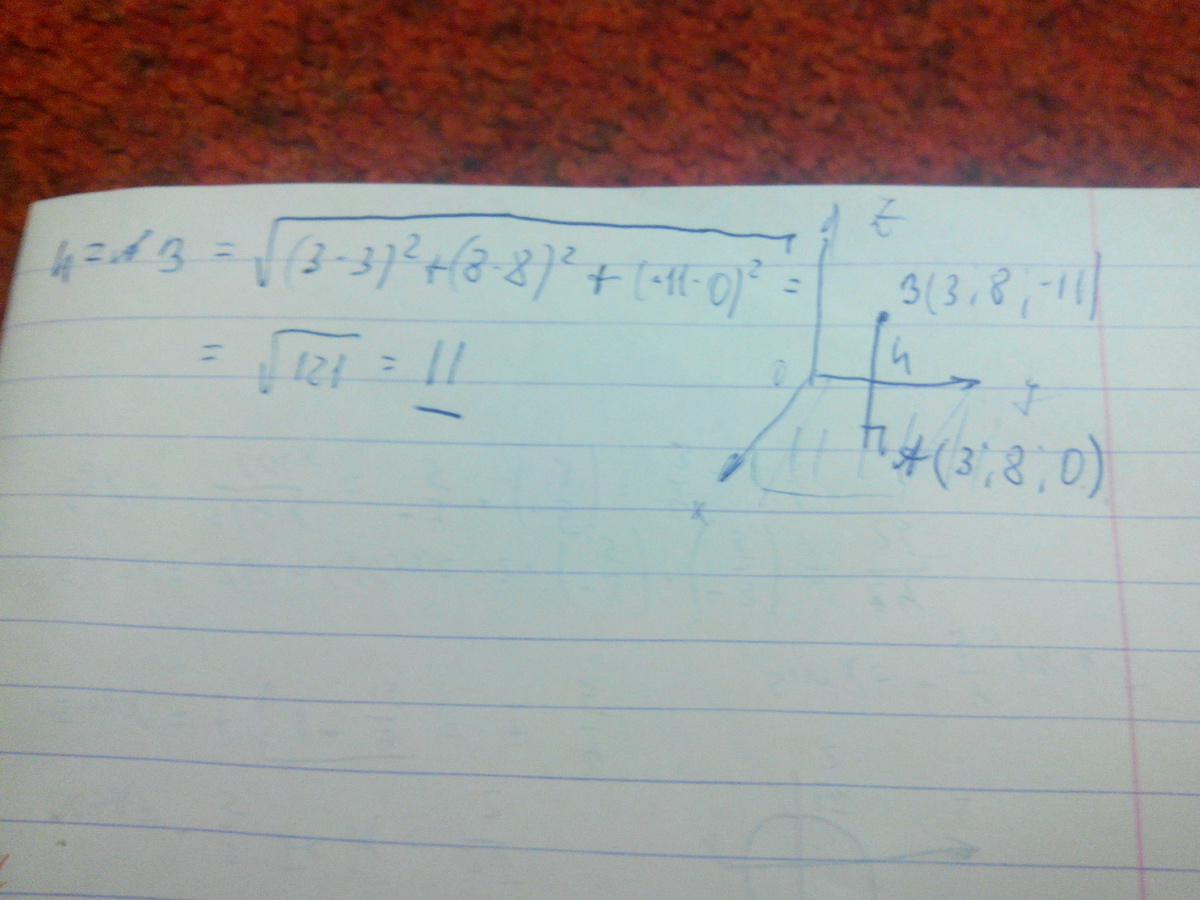 h = AB = √(3-3)² + (8-8)² + (-11-0)² =
= √121 = 11
z
B(3; 8; -11)
h
0
y
A(3; 8; 0)
x